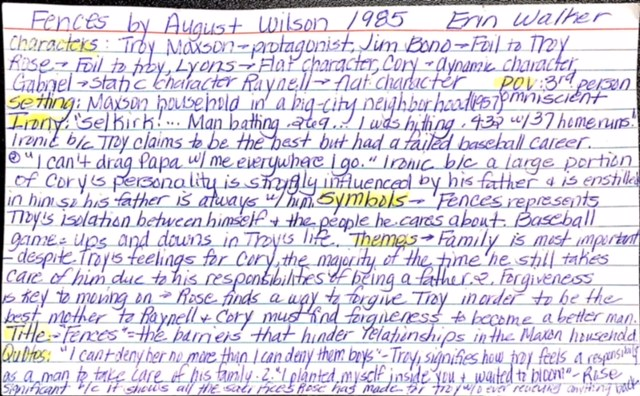 Fences by August Wilson 1985 Erin Walker
Characters: Troy Maxson → protagonist, Jim Bono → Foil to Troy
Rose → Foil to troy, Lyons → Flat character, Cory → dynamic character
Gabriel → static character Raynell → flat character POV: 3rd person
Setting: Maxson household in a big-city neighborhood (1957) omniscient
Irony: "Selkirk!... Man batting .269... I was hitting .432 w/ 37 home runs!"
Ironic b/c Troy claims to be the best but had a failed baseball career.
② "I can't drag Papa w/ me everywhere I go." Ironic b/c a large portion
of Cory's personality is strongly influenced by his father & is enstilled
in him so his father is always w/ him. Symbols → Fences represents
Troy's isolation between himself & the people he cares about. Baseball
game = ups and downs in Troy's life. Themes → Family is most important
- despite Troy's feelings for Cory, the majority of the time he still takes
care of him due to his responsibilities of being a father. 2. Forgiveness
is key to moving on → Rose finds a way to forgive Troy in order to be the
best mother to Raynell & Cory must find forgiveness to become a better man.
Title: "Fences" = the barriers that hinder relationships in the Maxon household
Quotes: "I can't deny her no more than I can deny them boys" - Troy, signifies how troy feels a responsibility
as a man to take care of his family. 2. "I planted myself inside you & waited to bloom" - Rose,
significant b/c it shows all the sacrifices Rose has made for troy w/o ever receiving anything back